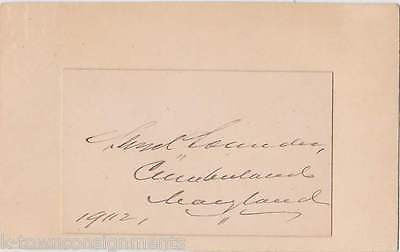 Saml Lowndes,
Cumberland
Maryland
1902,
k-townconsignments